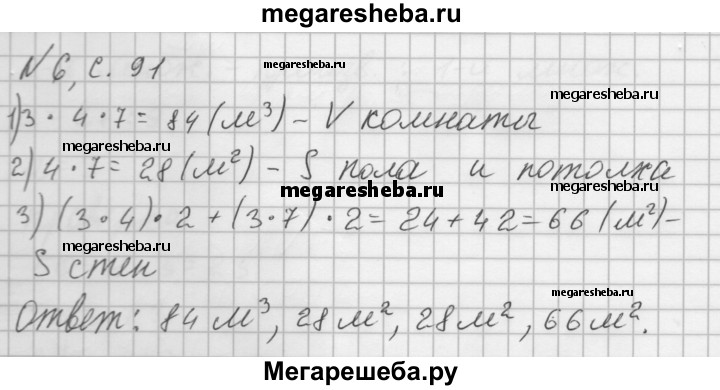 megaresheba.ru
N 6, с. 91
megaresheba.ru
1) 3 · 4 · 7 = 84 (м³) – V комнаты
megaresheba.ru
2) 4 · 7 = 28 (м²) – S пола и потолка
megaresheba.ru
3) (3 · 4) · 2 + (3 · 7) · 2 = 24 + 42 = 66 (м²) –
megaresheba.ru
S стен
megaresheba.ru
Ответ: 84 м³, 28 м², 28 м², 66 м².
Мегарешеба.ру